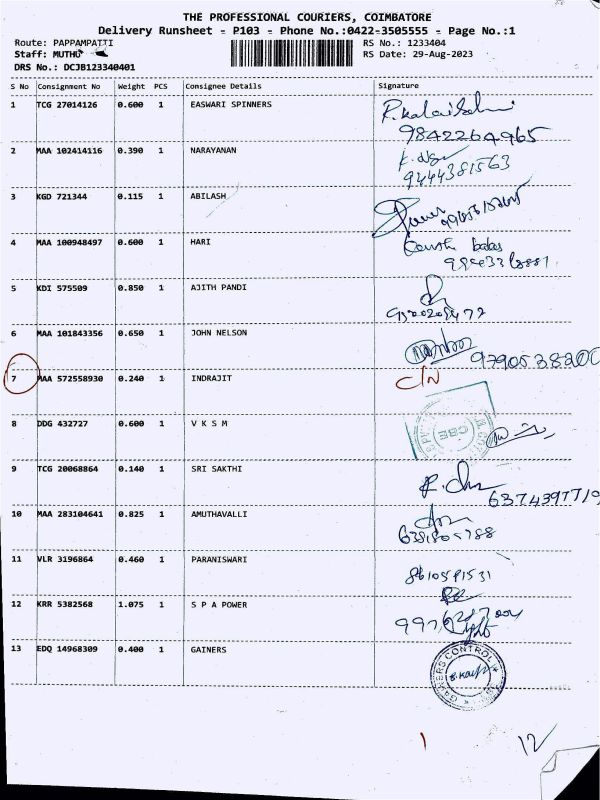 THE PROFESSIONAL COURIERS, COIMBATORE
Delivery Runsheet - P103 - Phone No.:0422-3505555 - Page No.:1
Route: PAPPAMPATTI RS No.: 1233404
Staff: MUTHU RS Date: 29-Aug-2023
DRS No.: DCJB123340401
S No Consignment No Weight PCS Consignee Details Signature
1 TCG 27014126 0.600 1 EASWARI SPINNERS
9842264965
2 MAA 102414116 0.390 1 NARAYANAN
9444381563
3 KGD 721344 0.115 1 ABILASH
4 MAA 100948497 0.600 1 HARI
5 KDI 575509 0.850 1 AJITH PANDI
6 MAA 101843356 0.650 1 JOHN NELSON
9790538200
7 MAA 572558930 0.240 1 INDRAJIT C/N
8 DDG 432727 0.600 1 V K S M
CBE
9 TCG 20068864 0.140 1 SRI SAKTHI
6374397719
10 MAA 283104641 0.825 1 AMUTHAVALLI
11 VLR 3196864 0.460 1 PARANISWARI
8610591531
12 KRR 5382568 1.075 1 S P A POWER
13 EDQ 14968309 0.400 1 GAINERS
CONTROL
1 12